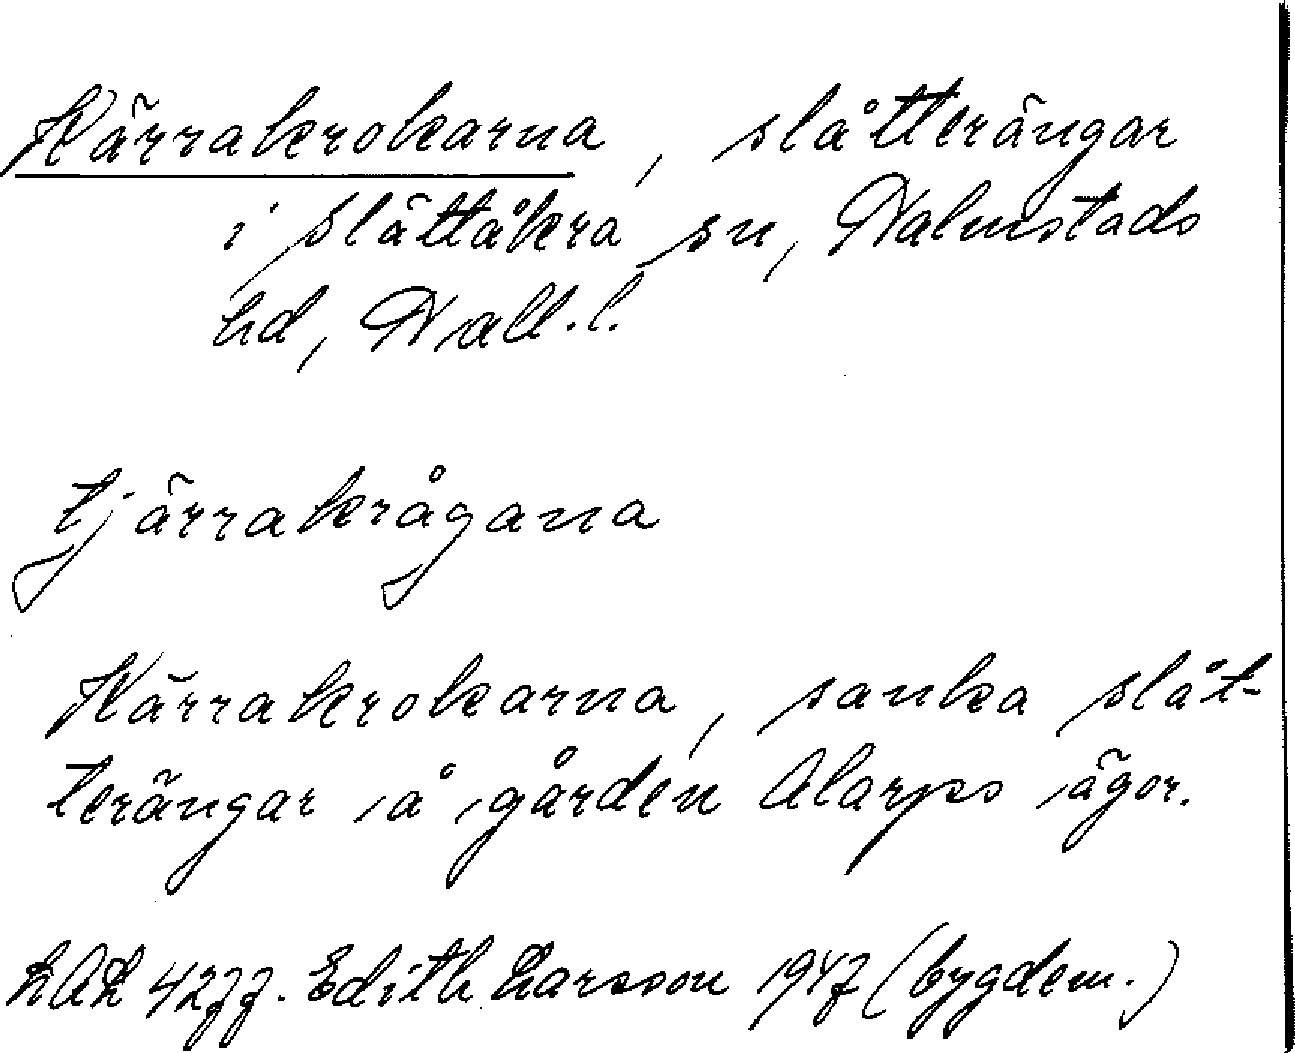 Kärrakrokarna, slåtterängar
i Slättåkra sn, Halmstads
hd, Hall.l.
tjärrakrågana
Kärrakrokarna, sanka slåt-
terängar å gården Alarps ägor.
LAL 4277. Edith Larsson 1947 (bygdem.)